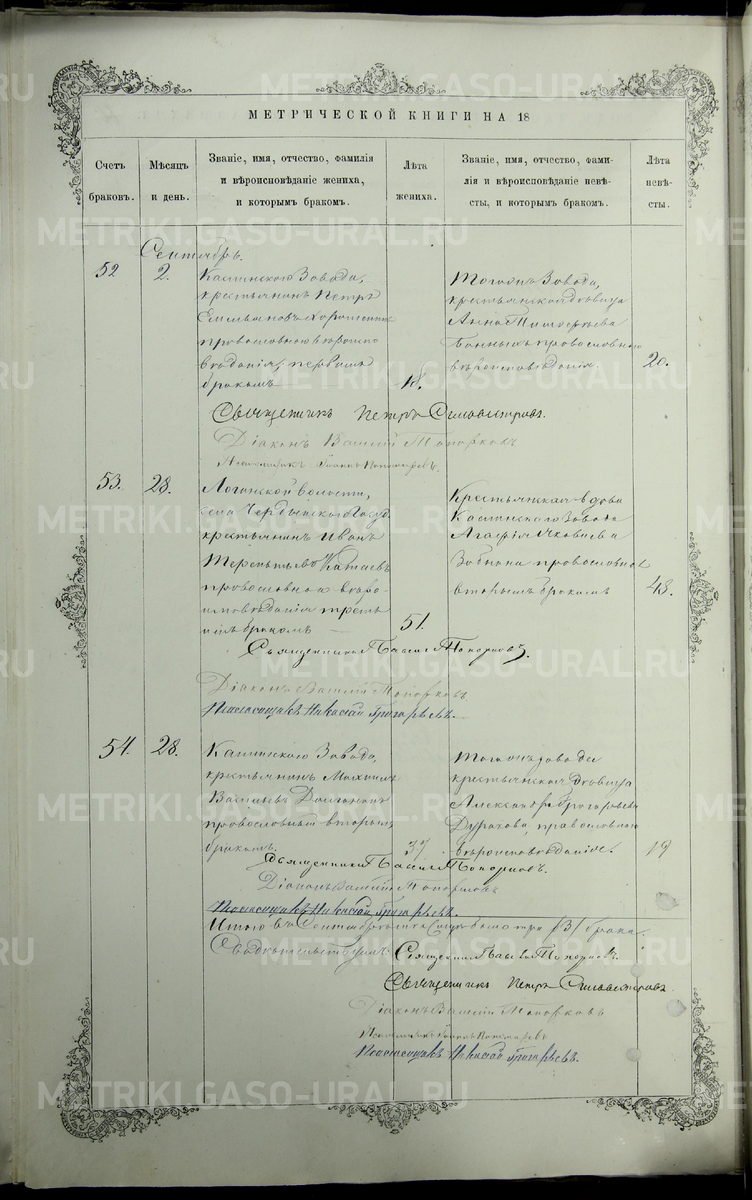 МЕТРИЧЕСКОЙ КНИГИ НА 18
Счетъ браковъ.
Мѣсяцъ и день.
Званіе, имя, отчество, фамилія
и вѣроисповѣданіе жениха,
и которымъ бракомъ.
Лѣта жениха.
Званіе, имя, отчество, фами-
лія и вѣроисповѣданіе невѣ-
сты, и которымъ бракомъ.
Лѣта невѣ-
сты.
Сентябрь.
52
2.
Каслинскаго Завода,
крестьянинъ Петръ
Емельяновъ
православнаго вѣроиспо
вѣданія, первымъ
бракомъ
18.
Тогожъ Завода,
крестьянская дѣвица
Анна Тимофеева
православнаго
вѣроисповѣданія.
20.
Священникъ Петръ Сильвестровъ.
Діаконъ Василій Топорковъ
Псаломщикъ Іоаннъ Пономаревъ.
53.
28.
волости,
села
крестьянинъ Иванъ
Терентьевъ Катаевъ
православнаго вѣро-
исповѣданія треть-
имъ бракомъ
51.
Крестьянская вдова
Каслинскаго Завода
Агафія Яковлева
православнаго
вторымъ бракомъ
43.
Священникъ Топорковъ.
Діаконъ Василій Топорковъ.
Псаломщикъ Николай Григорьевъ.
54.
28.
Каслинскаго Завода,
крестьянинъ Михаилъ
Васильевъ
православный вторымъ
бракомъ.
37
Тогожъ завода
крестьянская дѣвица
Александра Григорьева
Дуракова, православнаго
вѣроисповѣданія.
19
Священникъ Топорковъ.
Діаконъ Василій Топорковъ
Псаломщикъ Николай Григорьевъ.
Итого въ Сентябрѣ мѣсяцѣ было три /3/ брака.
Священникъ Топорковъ.
Священникъ Петръ Сильвестровъ.
Діаконъ Василій Топорковъ
Псаломщикъ Іоаннъ Пономаревъ
Псаломщикъ Николай Григорьевъ.
METRIKI.GASO-URAL.RU